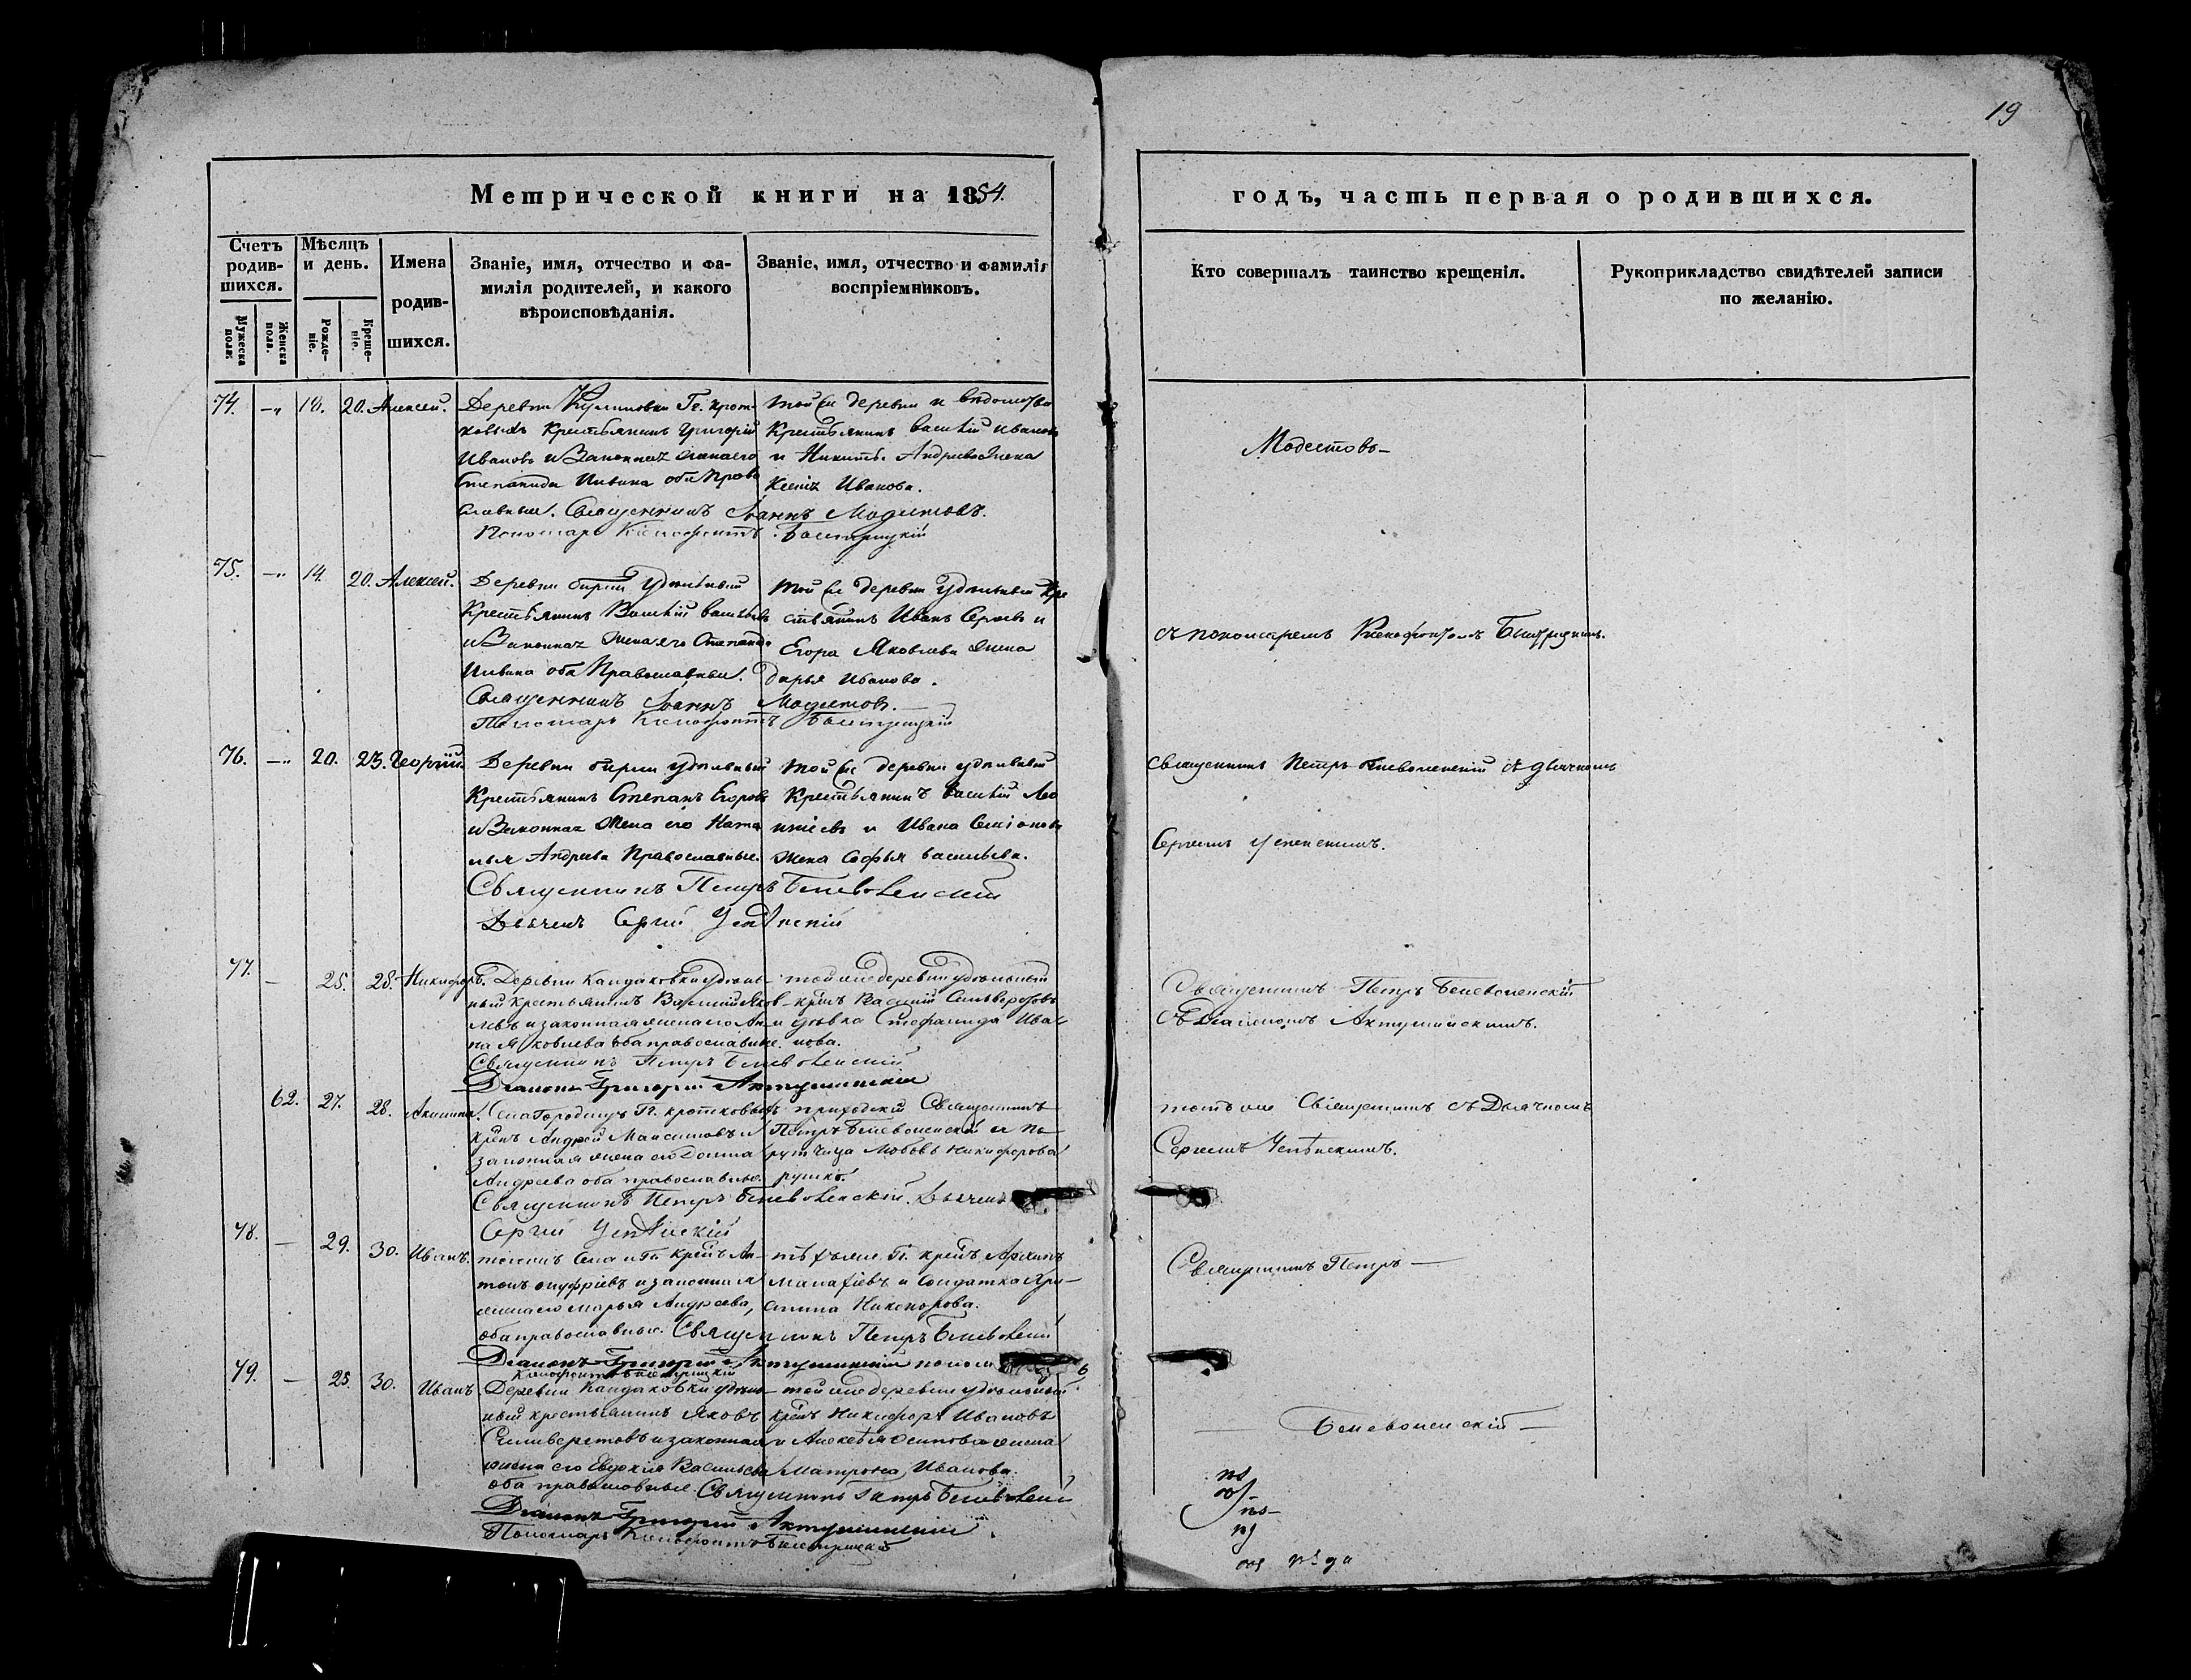 19
Метрической книги на 1854.
годъ, часть первая о родившихся.
Счетъ родив-
шихся.
Мужеска пола.
Женска пола.
Мѣсяцъ
и день.
Рожде-
ніе.
Креще-
ніе.
Имена
родив-
шихся.
Званіе, имя, отчество и фа-
милія родителей, и какого
вѣроисповѣданія.
Званіе, имя, отчество и фамилія
воспріемниковъ.
Кто совершалъ таинство крещенія.
Рукоприкладство свидѣтелей записи
по желанію.
74. 18. 20. Алексей.
Деревни Г.
Крестьянинъ Григорій
Ивановъ и Законная жена его
Степанида оба Право
славные. Священникъ Іоаннъ Модестовъ.
Пономарь Ксенофонтъ
той же деревни и
Крестьянинъ Василій Ивановъ
и Никиты Андреева жена
Ксенія Иванова.
Модестовъ
75. 14. 20. Алексей.
Деревни Удѣльный
Крестьянинъ Василій Васильевъ
и Законная жена его Степанида
оба Православные.
Священникъ Іоаннъ Модестовъ.
Пономарь Ксенофонтъ
той же деревни Удѣльный Кре
стьянинъ Иванъ и
Егора Яковлева жена
Дарья Иванова.
съ пономаремъ Ксенофонтомъ
76. 20. 23. Георгій.
Деревни удѣльный
Крестьянинъ Степанъ Егоровъ
и Законная Жена его Ната
лья Андреева Православные.
Священникъ Петръ Беневоленскій
Дьячекъ Сергій Успѣнскій
той же деревни удѣльный
Крестьянинъ Василій Лео
нтіевъ и Ивана Семіонова
жена Софья Васильева.
Священникъ Петръ Беневоленскій съ дьячкомъ
Сергіемъ Успенскимъ.
77. 25. 28. Никифоръ.
Деревни Кандаковки удѣль-
ный крестьянинъ Василій Яков-
левъ и законная жена его Ан
на Яковлева оба православные.
Священникъ Петръ Беневоленскій
Діаконъ Григорій Актушинскій
той же деревни удѣльный
крнъ Василій Сильверстовъ
и дѣвка Стефанида Ива-
нова.
Священникъ Петръ Беневоленскій
съ Діакономъ Актушинскимъ.
62. 27. 28. Акилина.
Села Городищъ Гг. кротковыхъ
крнъ Андрей Максимовъ и
законная жена его Домна
Андреева оба православные.
Священникъ Петръ Беневоленскій. Дьячекъ
Сергій Успѣнскій
приходскій Священникъ
Петръ Беневоленскій и по
ручица Любовь Никифорова
тотъ же Священникъ съ Дьячкомъ
Сергіемъ Успѣнскимъ.
78. 29. 30. Иванъ.
тогожъ Села и Гг. крнъ Ан-
тонъ онуфріевъ и законная
жена его Марья Андреева,
оба православные. Священникъ Петръ Беневоленскій
Діаконъ Григорій Актушинскій
тѣхъ же Гг. крнъ Архипъ
Малафіевъ и Солдатка Аку-
лина Никонорова.
Священникъ Петръ
79. 25 30. Иванъ.
Деревни Кандаковки удѣль-
ный крестьянинъ Яковъ
Сильверстовъ и законная
жена его Евдокія Васильева
оба православные Священникъ Петръ Беневоленскій
Діаконъ Григорій Актушинскій
Пономарь Ксенофонтъ
той же деревни удѣльный
крнъ Никифоръ Ивановъ
и Алексѣя Осипова жена
Матрона Иванова.
Беневоленскій